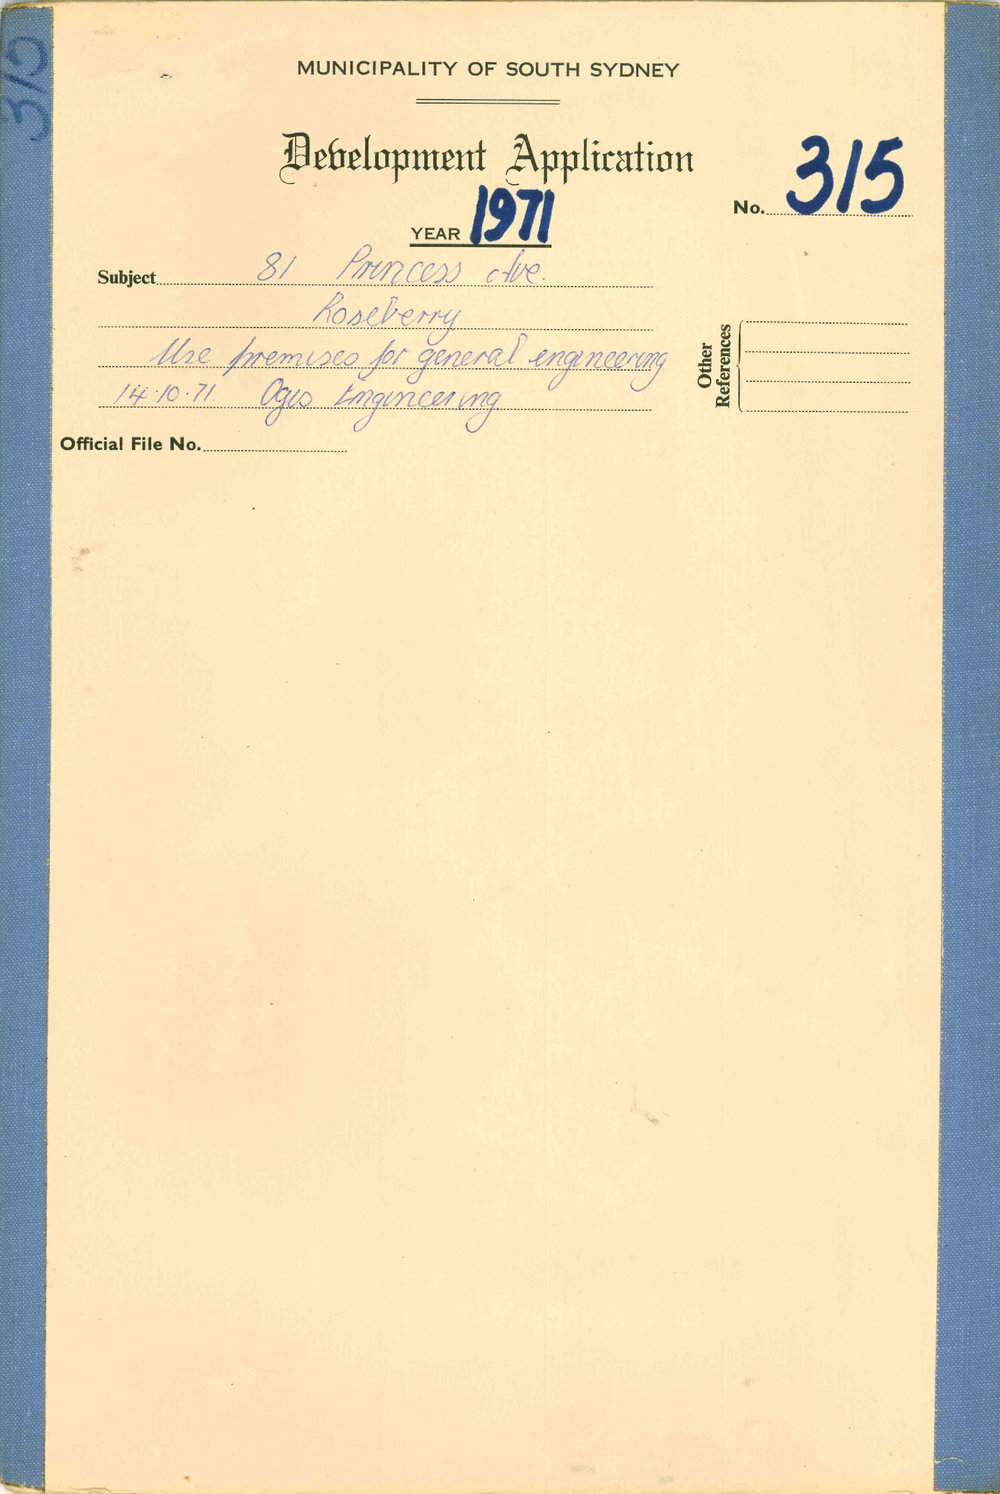 315
MUNICIPALITY OF SOUTH SYDNEY
Development Application
No. 315
YEAR 1971
Subject 81 Princess Ave.
Roseberry
Use premises for general engineering
14.10.71. Ogis Engineering
Other
References
Official File No.